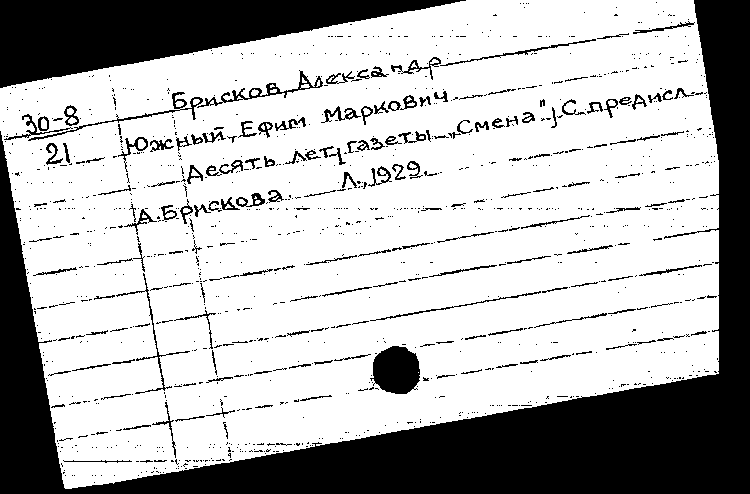 Брисков, Александр
30-8
Южный, Ефим Маркович
21
Десять лет газеты „Смена"; С предисл
А. Брискова. Л., 1929.